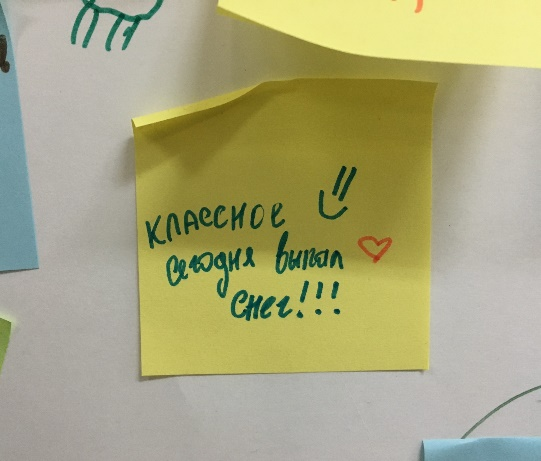 классное
сегодня выпал
снег!!!